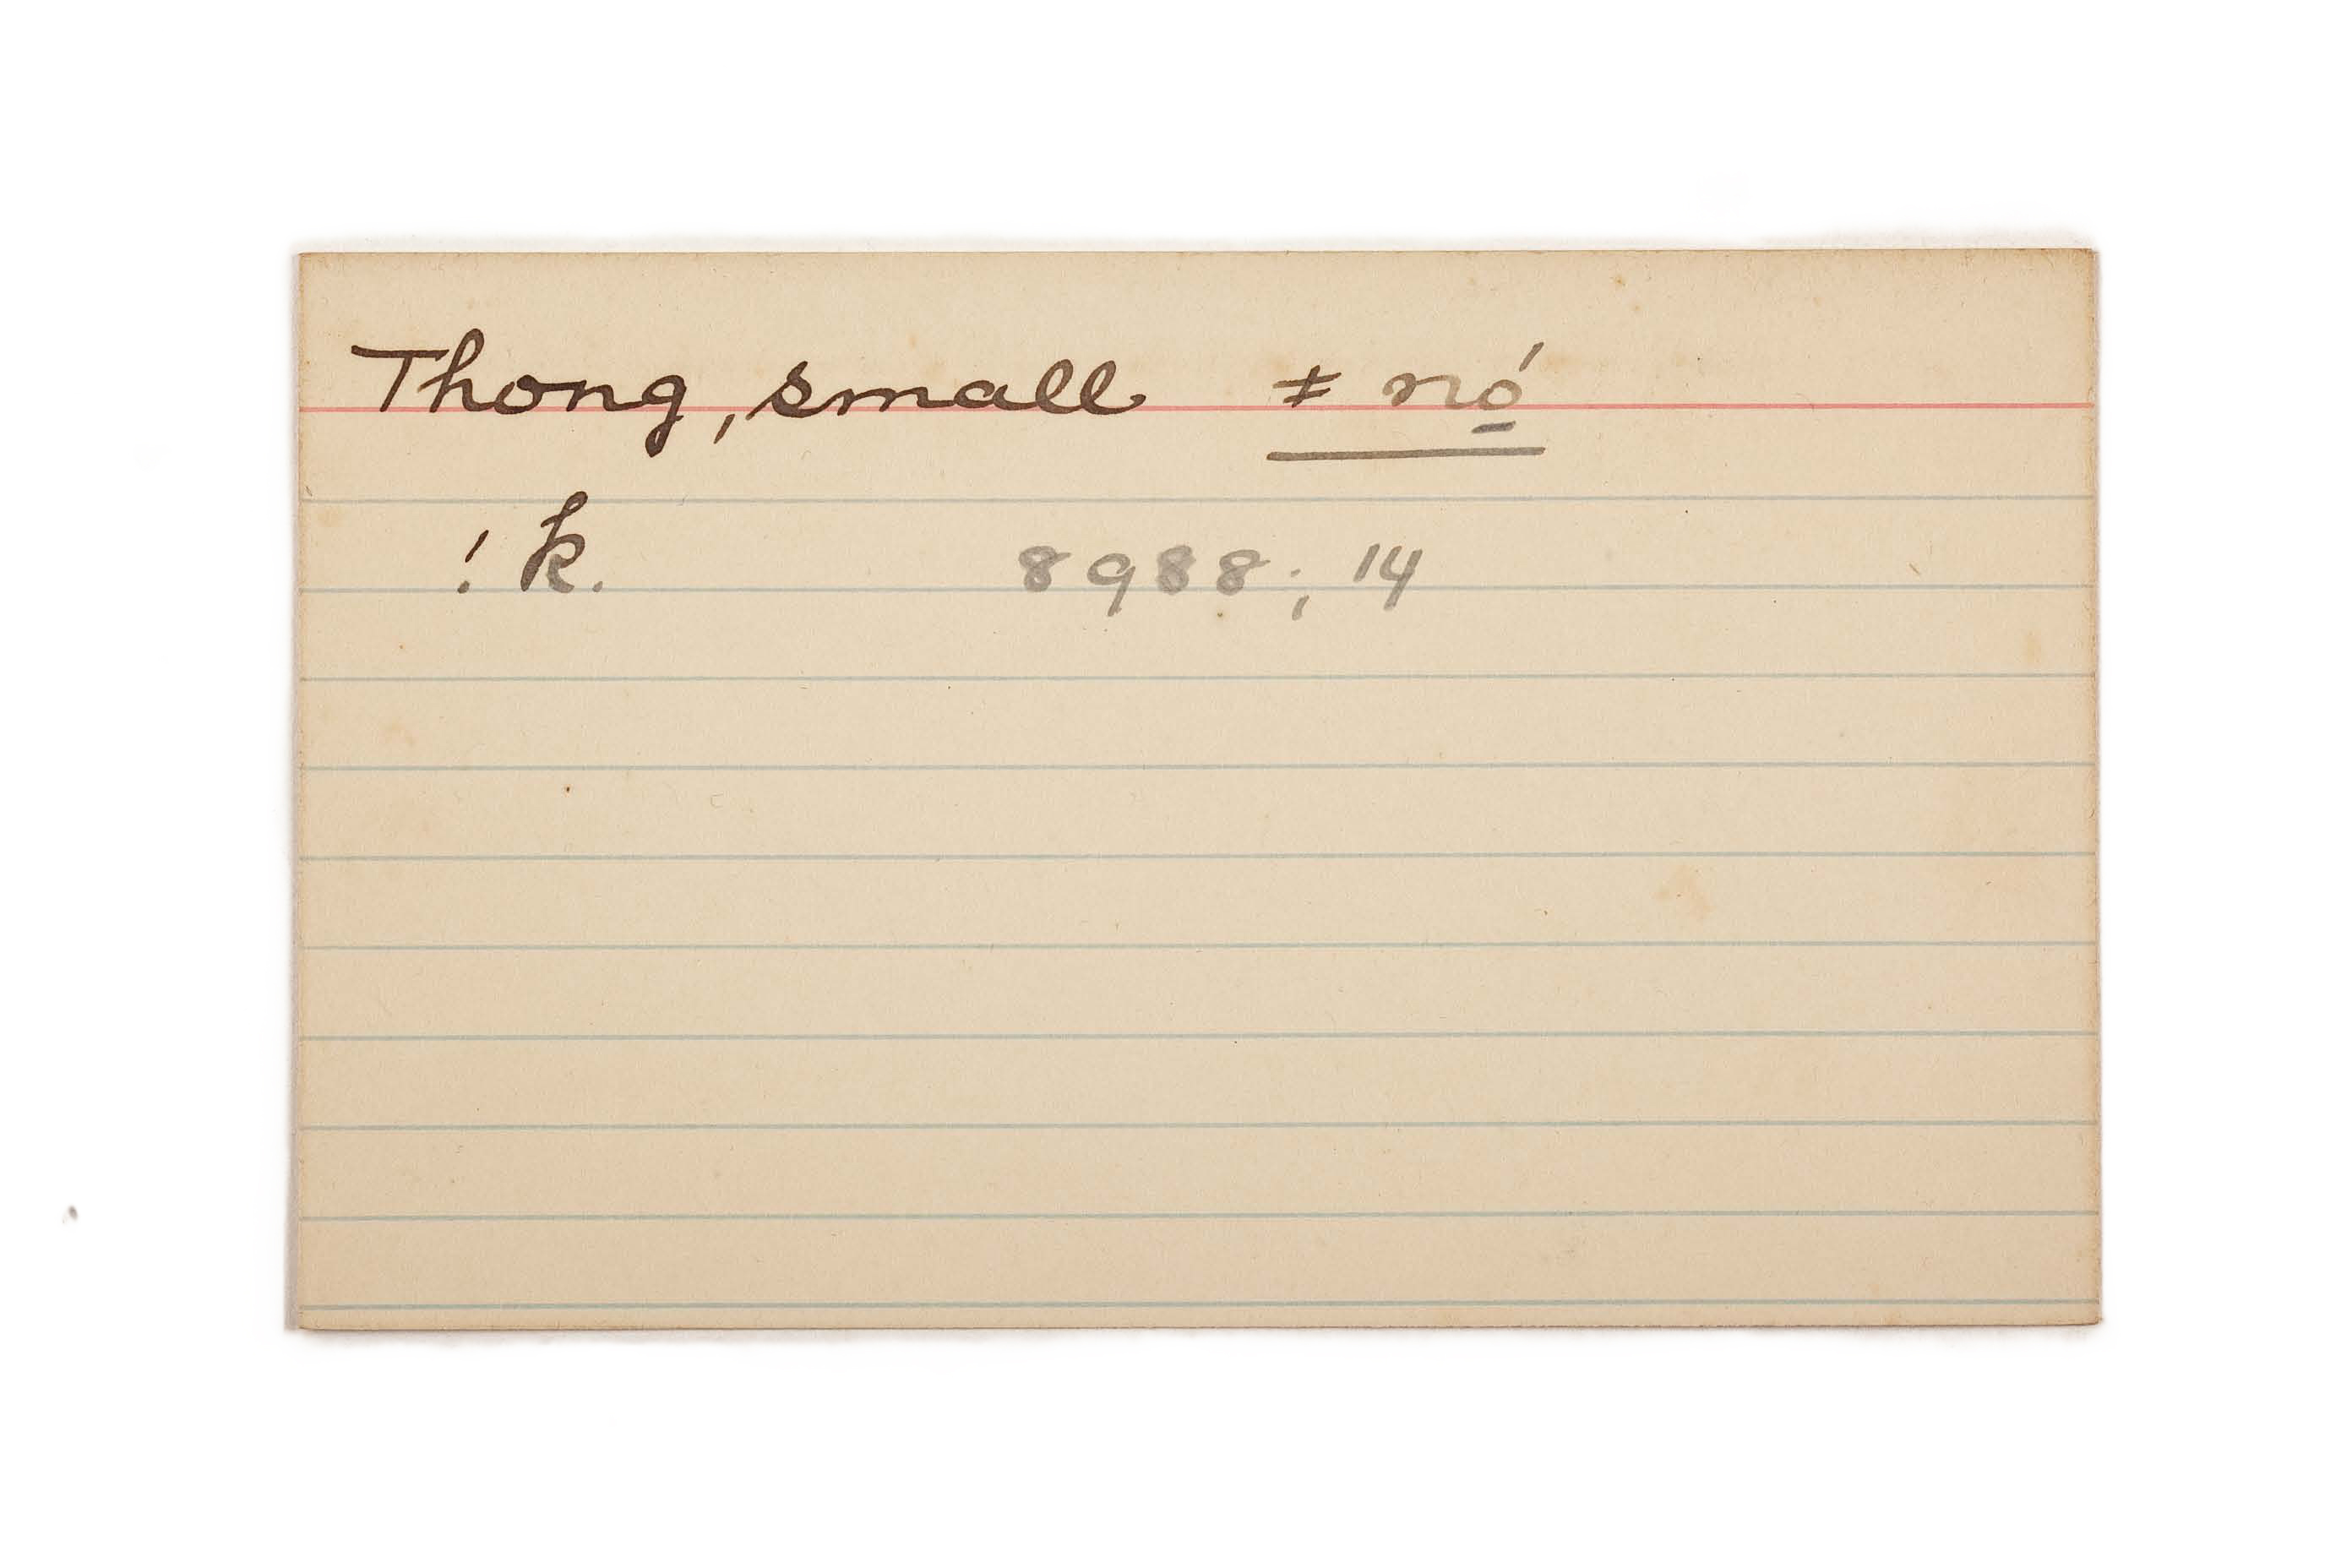 Thong, small ǂ nó̱
! k. 8988; 14